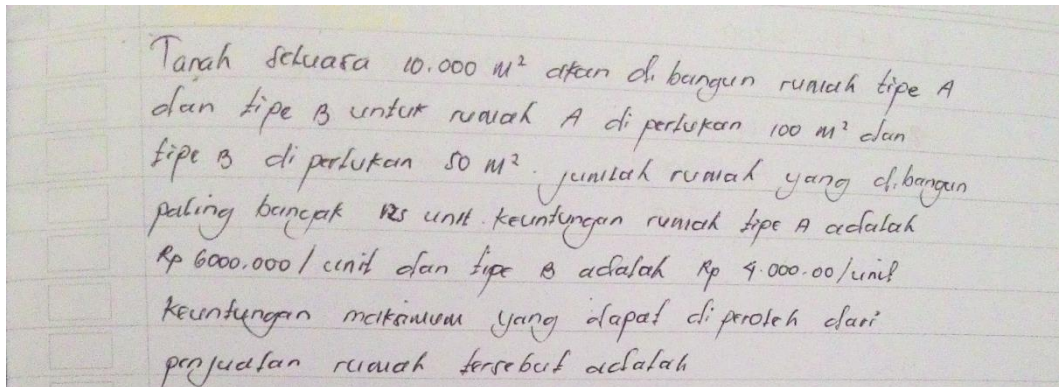 Tanah seluasa 10.000 m² akan di bangun rumah tipe A
dan tipe B untuk rumah A di perlukan 100 m² dan
tipe B di perlukan 50 m². jumlah rumah yang dibangun
paling bancak 125 unit. keuntungan rumah tipe A adalah
Rp 6000.000 / unit dan tipe B adalah Rp 4.000.00/unit
keuntungan maksimum yang dapat di peroleh dari
penjualan rumah tersebut adalah